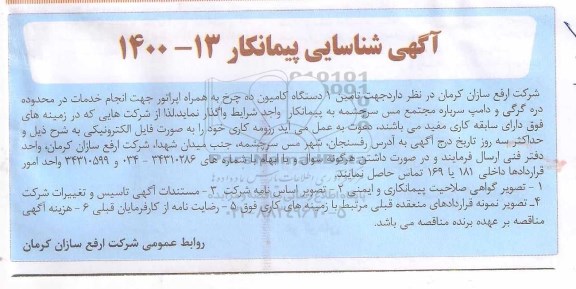 آگهی شناسایی پیمانکار ۱۳- ۱۴۰۰
شرکت ارفع سازان کرمان در نظر داردجهت تامین ۱ دستگاه کامیون ده چرخ به همراه اپراتور جهت انجام خدمات در محدوده
دره گرگی و دامپ سرباره مجتمع مس سرچشمه به پیمانکار واجد شرایط واگذار نماید.لذا از شرکت هایی که در زمینه های
فوق دارای سابقه کاری مفید می باشند، دعوت به عمل می آید رزومه کاری خود را به صورت فایل الکترونیکی به شرح ذیل و
حداکثر سه روز تاریخ درج آگهی به آدرس رفسنجان، شهر مس سرچشمه، جنب میدان شهدا، شرکت ارفع سازان کرمان، واحد
دفتر فنی ارسال فرمایند و در صورت داشتن هرگونه سوال و یا ابهام با شماره های ۳۴۳۱۰۲۸۶ - ۰۳۴ و ۳۴۳۱۰۵۹۹ واحد امور
قراردادها داخلی ۱۸۱ یا ۱۶۹ تماس حاصل نمایند.
۱ - تصویر گواهی صلاحیت پیمانکاری و ایمنی ۲ - تصویر اساس نامه شرکت ۳ - مستندات آگهی تاسیس و تغییرات شرکت
۴- تصویر نمونه قراردادهای منعقده قبلی مرتبط با زمینه های کاری فوق ۵ - رضایت نامه از کارفرمایان قبلی ۶ - هزینه آگهی
مناقصه بر عهده برنده مناقصه می باشد.
روابط عمومی شرکت ارفع سازان کرمان